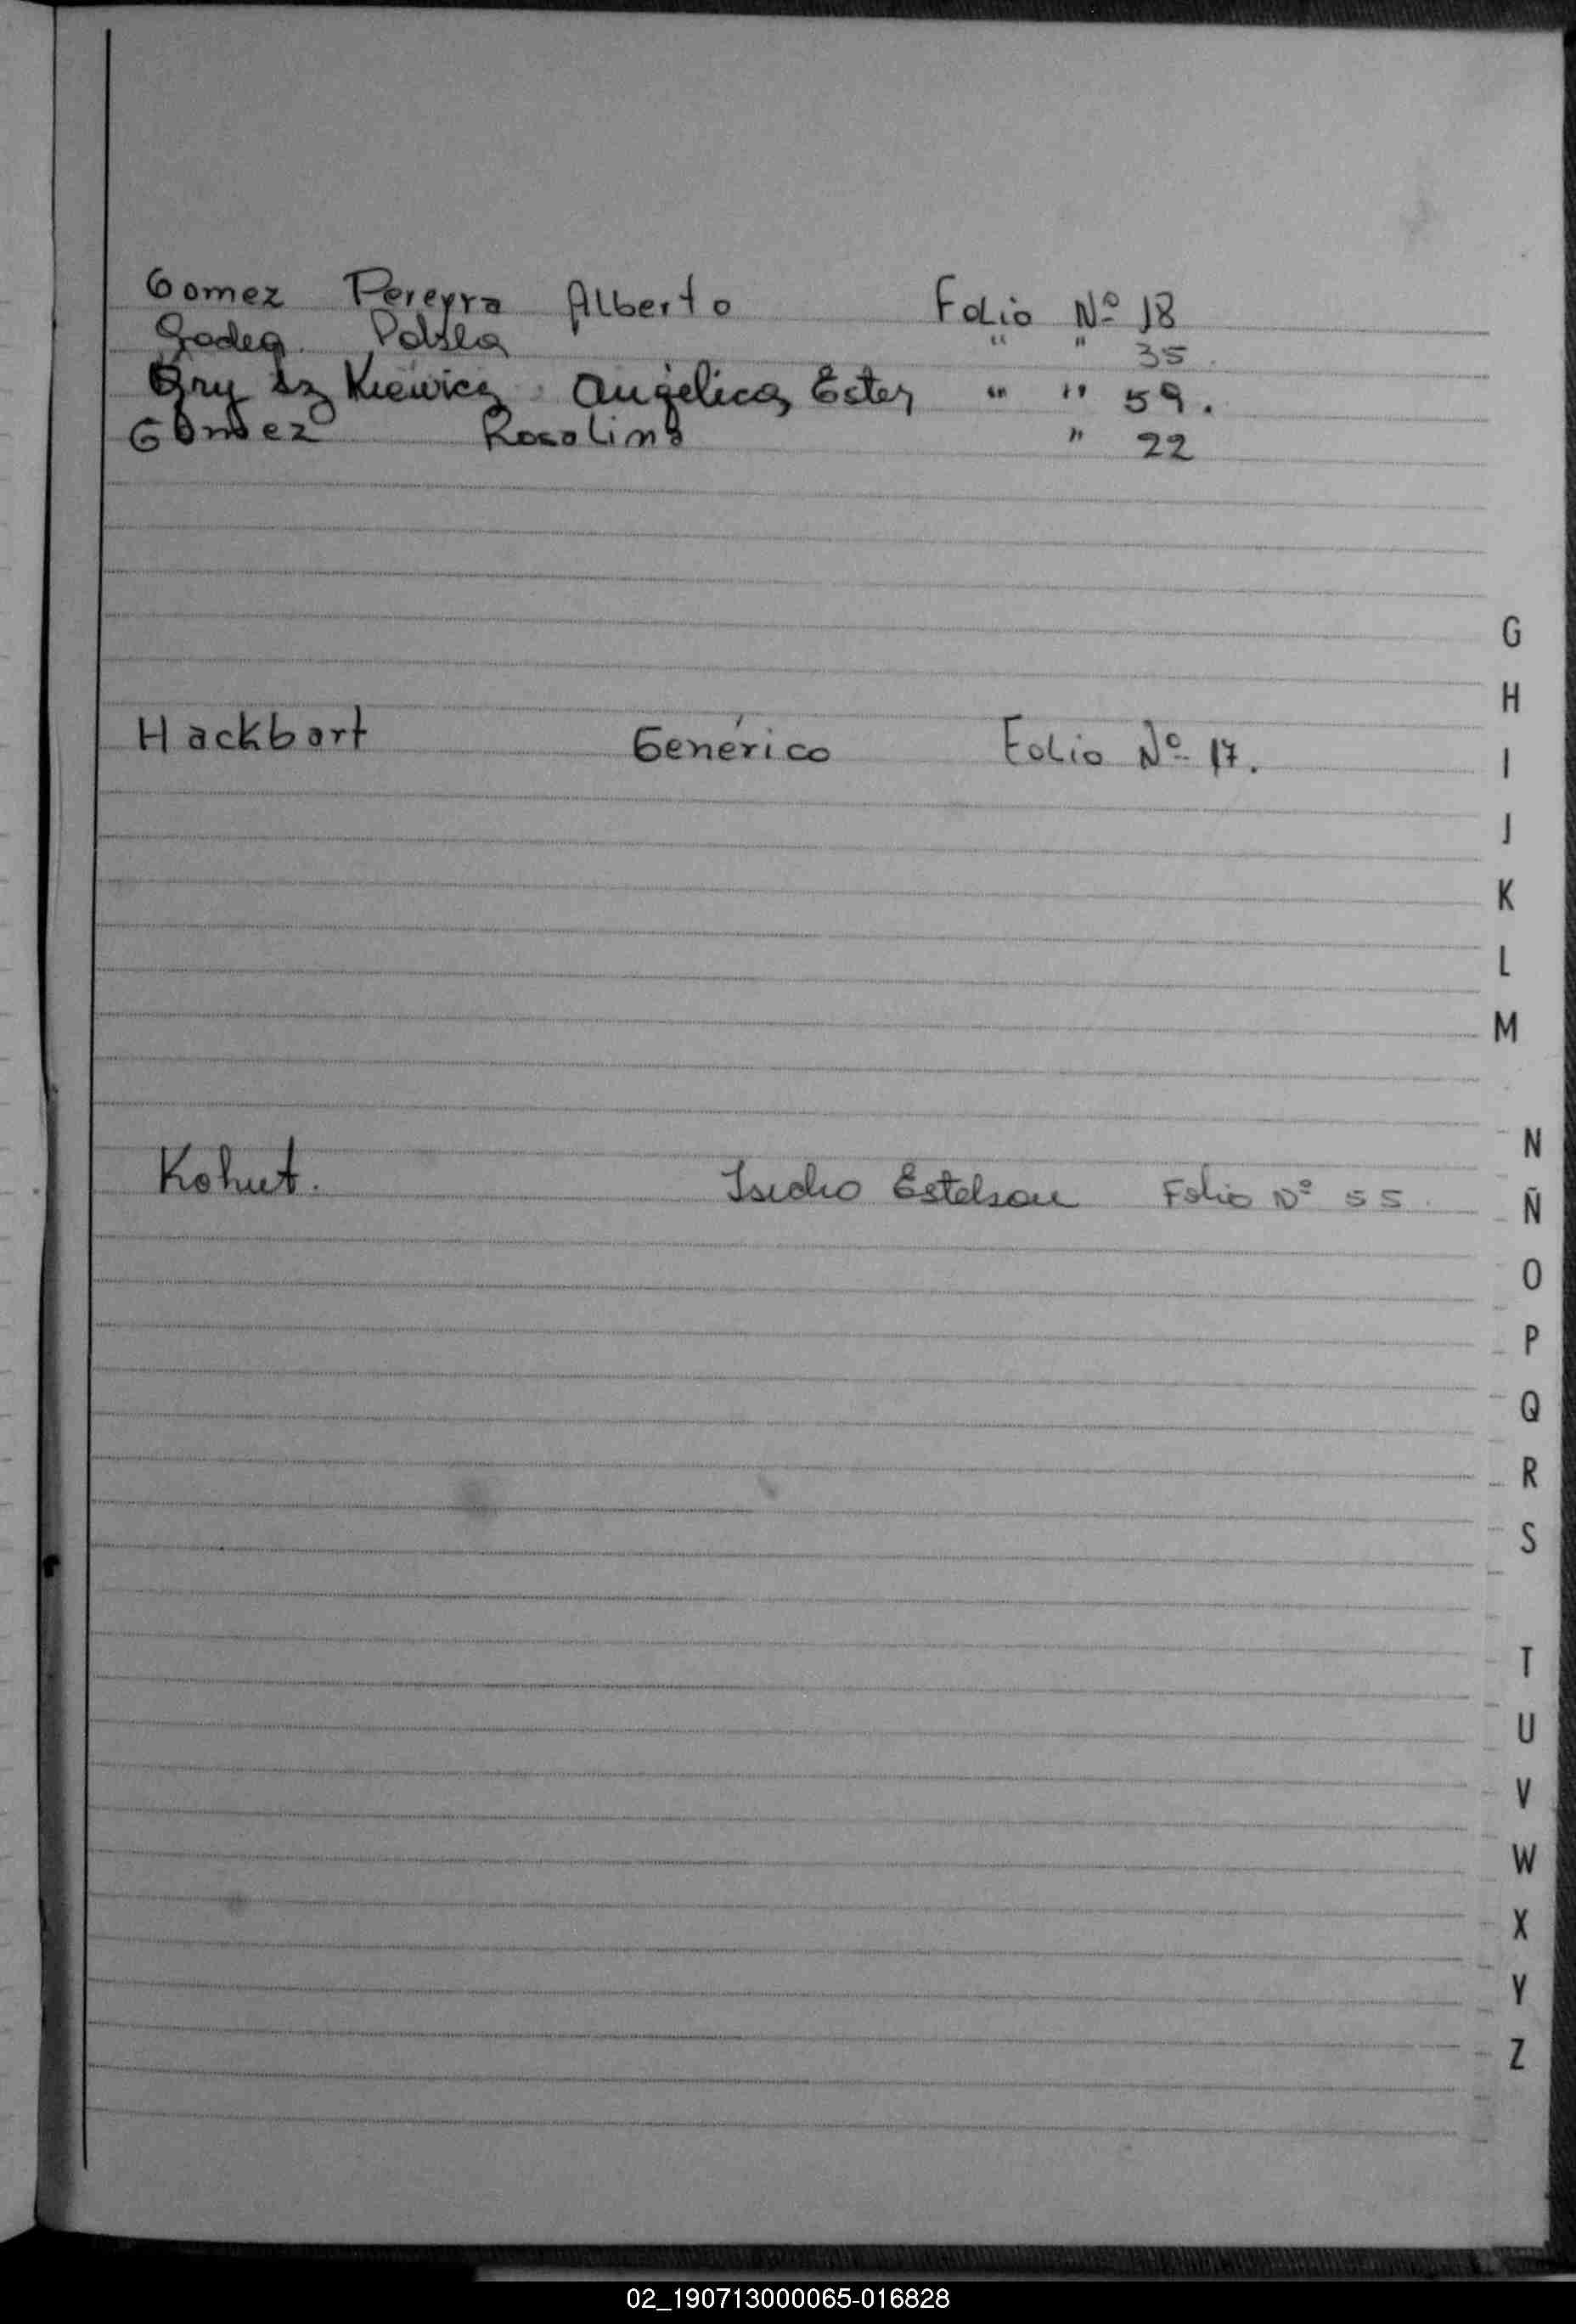 Gomez Pereyra Alberto Folio Nº 18
Godeq. " " 35.
Gry sz Kiewicz Angélica Ester " " 59.
Gomez Rosalina " 22
G
H
Hackbart Genérico Folio Nº 17.
I
J
K
L
M
N
Kohut. Isidro Estelson Folio Nº 55.
Ñ
O
P
Q
R
S
T
U
V
W
X
Y
Z
02_190713000065-016828